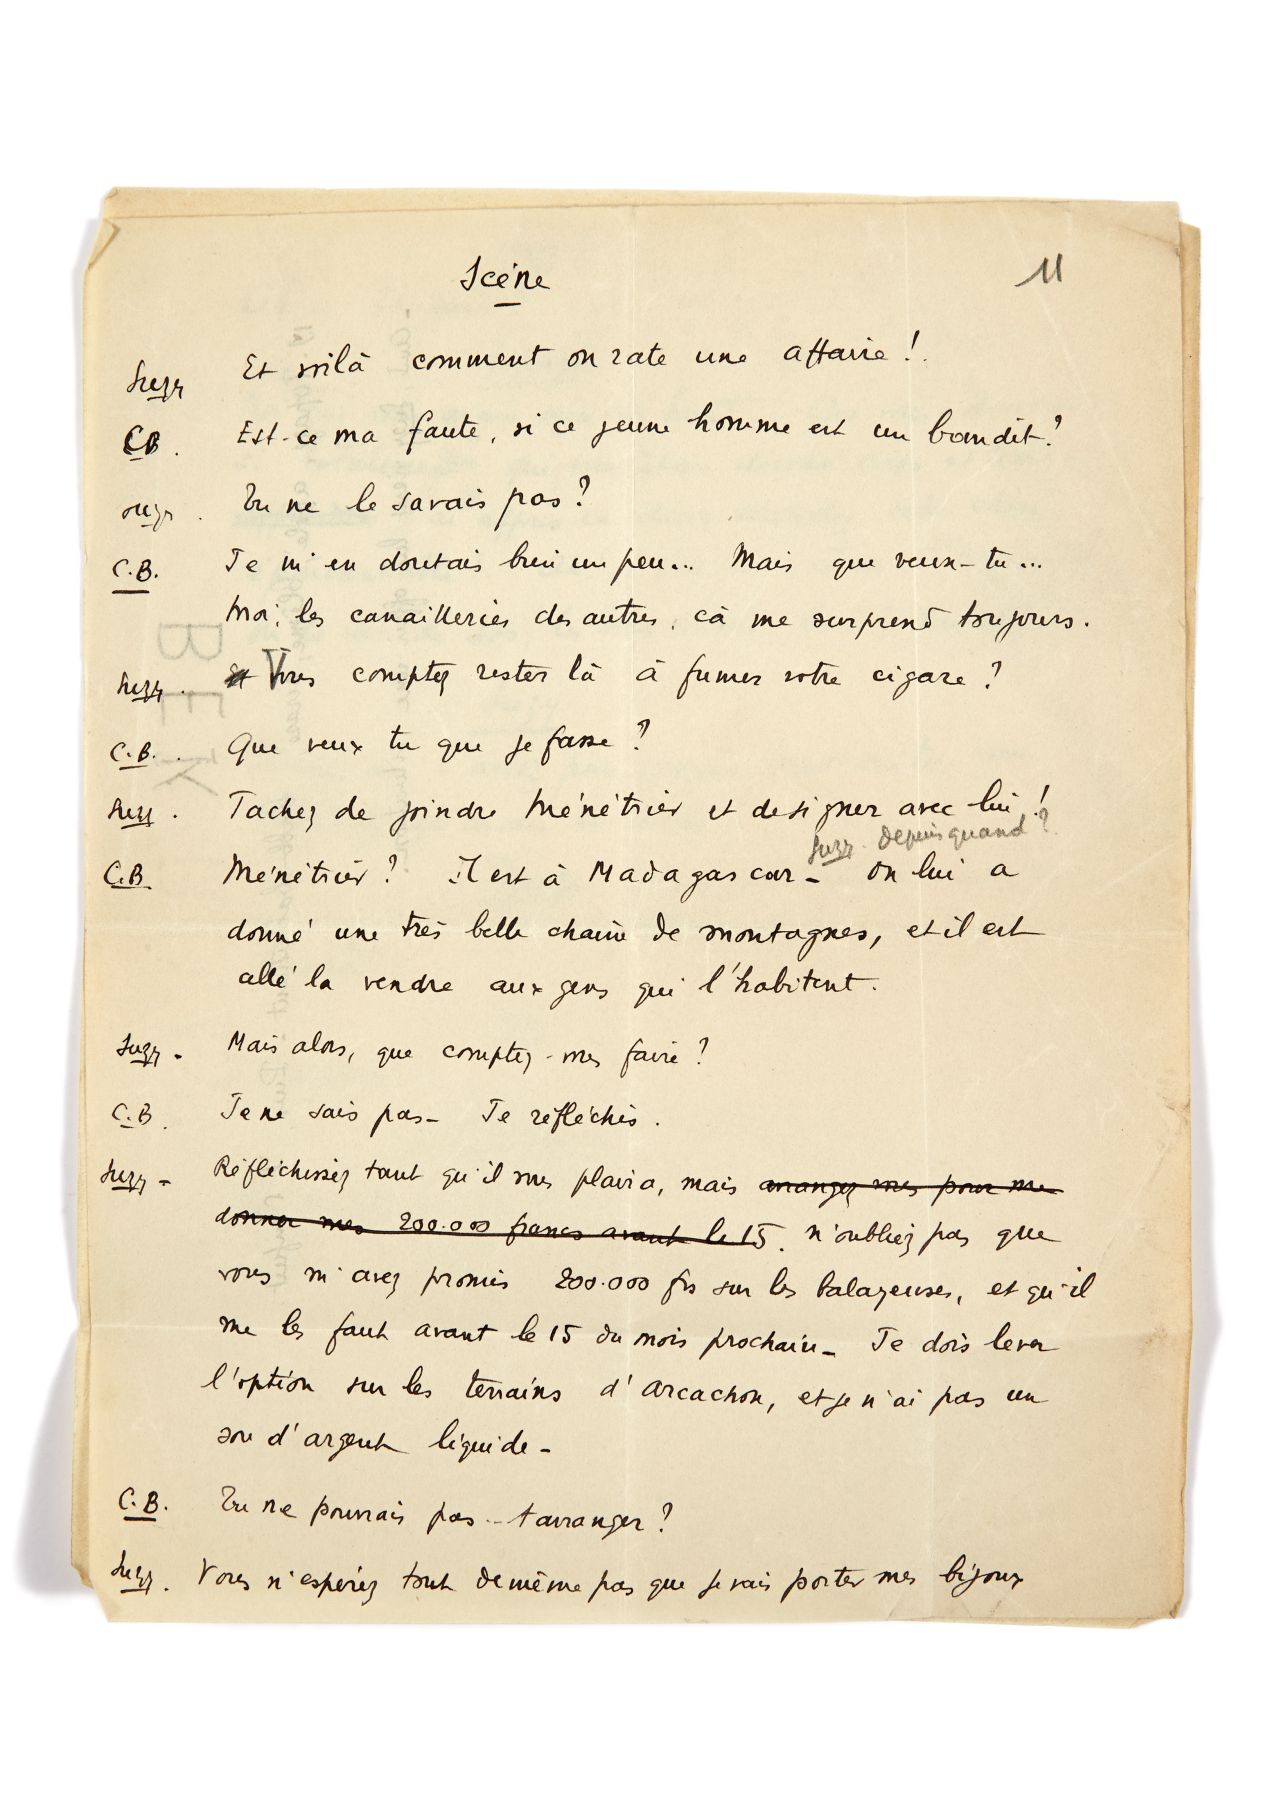 Scène
11
Suzy Et voilà comment on rate une affaire !
C.B. Est-ce ma faute, si ce jeune homme est un bandit ?
Suzy. Tu ne le savais pas ?
C.B. Je m'en doutais bien un peu... Mais que veux-tu...
Moi, les canailleries des autres, cà me surprend toujours.
Suzy. Et Vous comptez rester là à fumer votre cigare ?
C.B. Que veux tu que je fasse ?
Suzy. Tachez de joindre Ménétrier et de signer avec lui !
Suzy. depuis quand ?
C.B. Ménétrier ? Il est à Madagascar - On lui a
donné une très belle chaine de montagnes, et il est
allé la vendre aux gens qui l'habitent.
Suzy - Mais alors, que comptez-vous faire ?
C.B. Je ne sais pas - Je réfléchis.
Suzy - Réfléchissez tant qu'il vous plaira, mais arrangez vous pour me
donner mes 200.000 francs avant le 15. n'oubliez pas que
vous m'avez promis 200.000 frs sur les balayeuses, et qu'il
me les faut avant le 15 du mois prochain - Je dois lever
l'option sur les terrains d'Arcachon, et je n'ai pas un
sou d'argent liquide -
C.B. Tu ne pourrais pas t'arranger ?
Suzy. Vous n'espériez tout de même pas que je vais porter mes bijoux